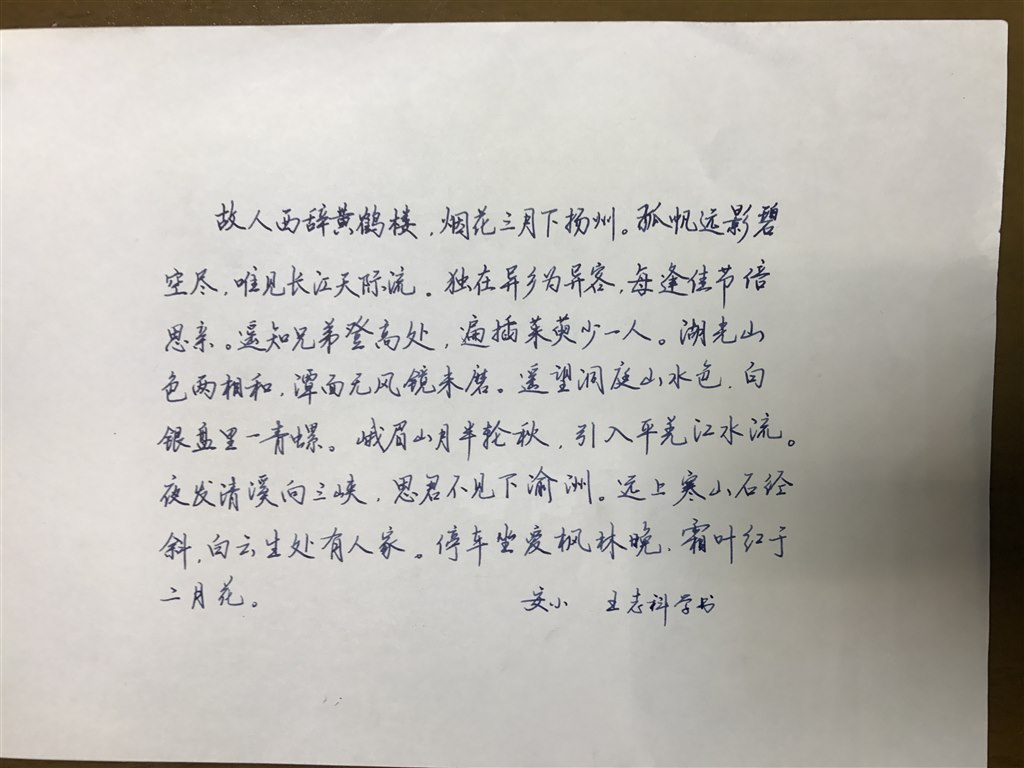 故人西辞黄鹤楼，烟花三月下扬州。孤帆远影碧
空尽，唯见长江天际流。独在异乡为异客，每逢佳节倍
思亲。遥知兄弟登高处，遍插茱萸少一人。湖光山
色两相和，潭面无风镜未磨。遥望洞庭山水色，白
银盘里一青螺。峨眉山月半轮秋，引入平羌江水流。
夜发清溪向三峡，思君不见下渝洲。远上寒山石经
斜，白云生处有人家。停车坐爱枫林晚，霜叶红于
二月花。
安小 王志科学书